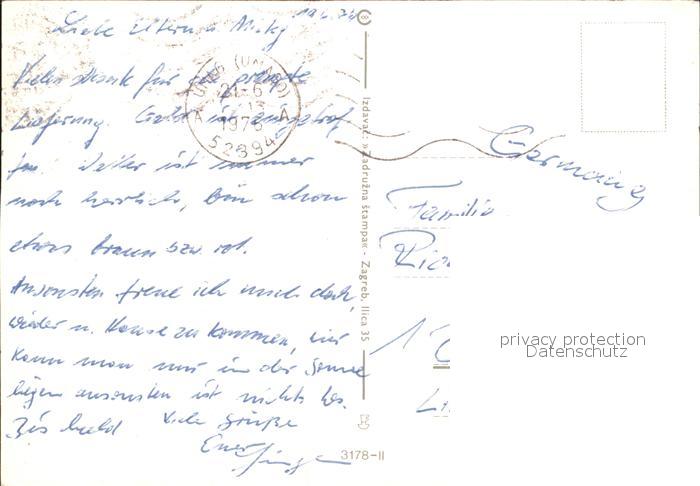 Liebe Eltern u. Micky
Vielen Dank für die prompte
Lieferung. Geld ist eingetrof
fen. Wetter ist immer
noch herrlich, bin schon
etwas braun bzw. rot.
Ansonsten freue ich mich doch,
wieder n. Hause zu kommen, hier
kann man nur in der Sonne
liegen ansonsten ist nichts los.
Bis bald Viele Grüße
Euer
UMAG (UMAGO)
21-6
1976
52394
Izdavač: »Zadružna štampa« - Zagreb, Ilica 35
3178-II
Germany
Familie
privacy protection
Datenschutz